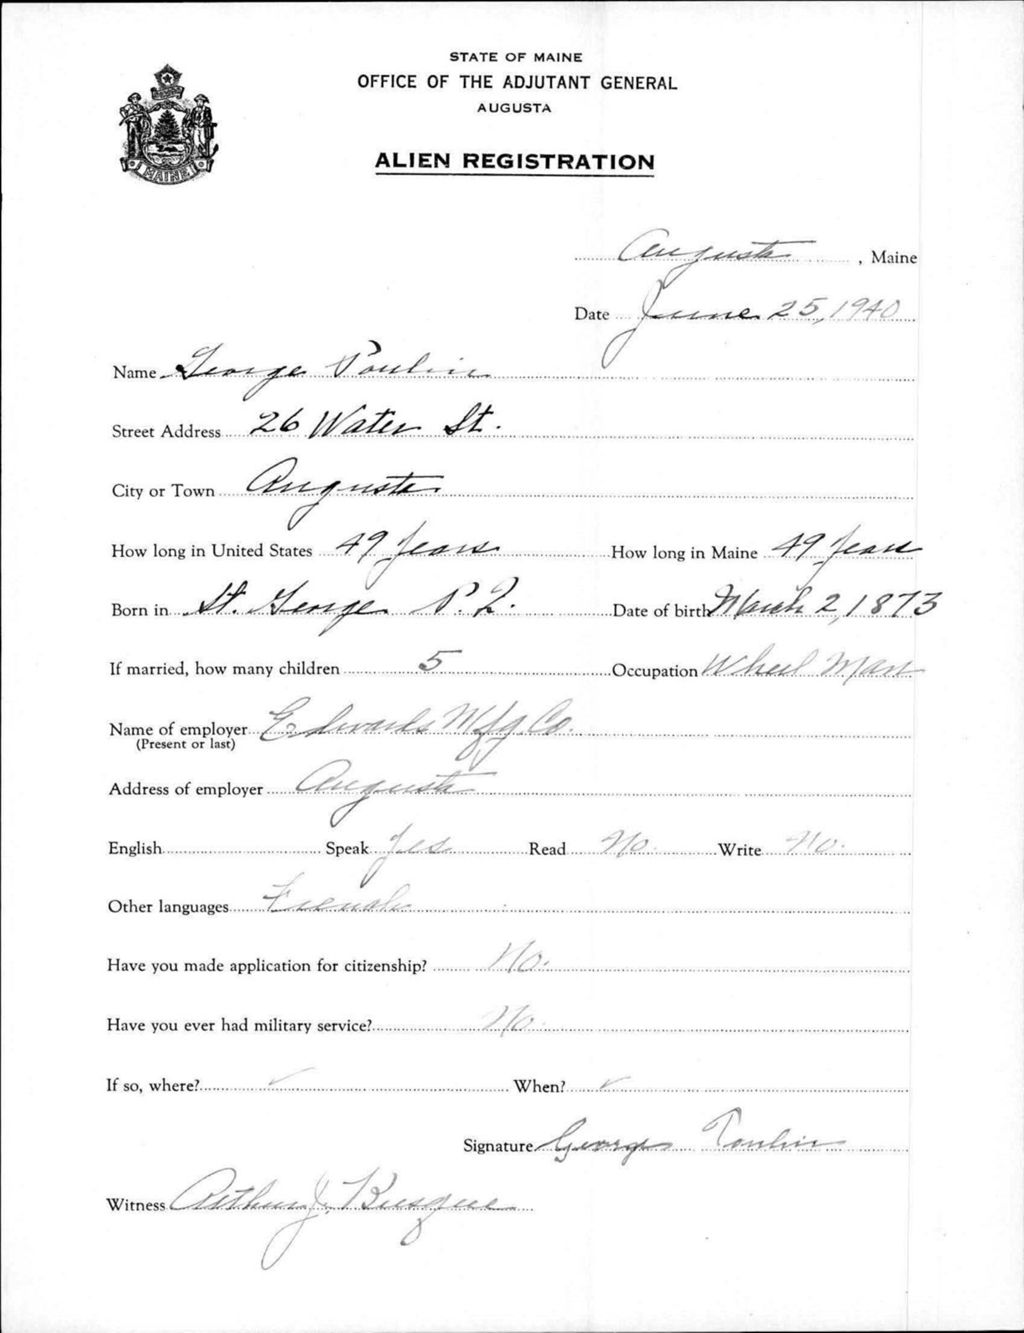 STATE OF MAINE
OFFICE OF THE ADJUTANT GENERAL
AUGUSTA
ALIEN REGISTRATION
MAINE
Augusta, Maine
Date June 25, 1940
Name George Poulin
Street Address 26 Water St.
City or Town Augusta
How long in United States 49 years How long in Maine 49 years
Born in St. George P.Q. Date of birth March 2, 1873
If married, how many children 5 Occupation Wheel Man
Name of employer Edwards Mfg Co.
(Present or last)
Address of employer Augusta
English Speak yes Read No. Write No.
Other languages French
Have you made application for citizenship? No.
Have you ever had military service? No
If so, where? ✓ When? ✓
Signature George Poulin
Witness Arthur J.